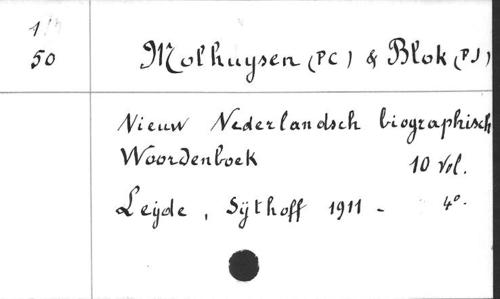 50
Molhuysen (PC) & Blok (PJ)
Nieuw Nederlandsch biographisch
Woordenboek 10 Vol.
Leyde, Sÿthoff 1911 - 4º.